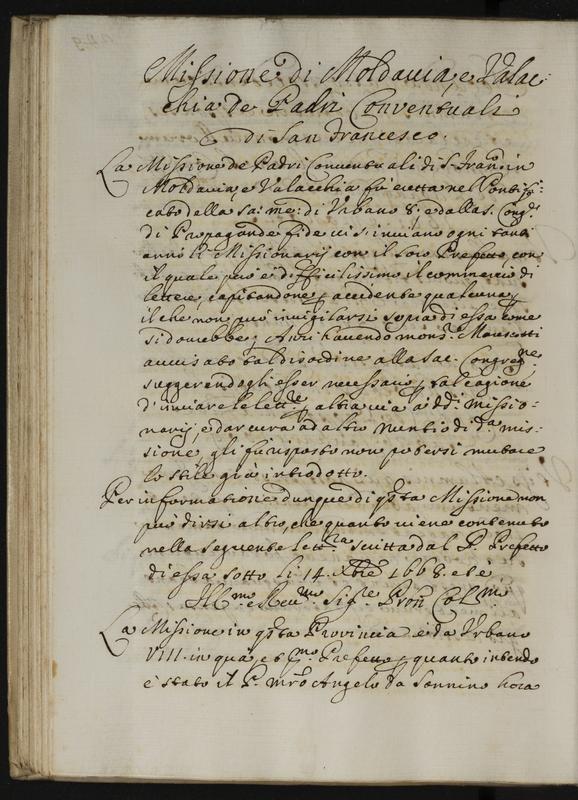 Missione di Moldauia, e Valac=
chia de Padri Conuentuali
di San Francesco.
La Missione de Padri Conuentuali di S. Fran.co in
Moldauia, e Valacchia fù eretta nel Pontifi=
cato della sa: me: di Urbano 8. e dalla S. Cong.e
di Propaganda fide ui s'inuiano ogni tanti
anni li Missionarij con il loro Prefetto con
il quale però è difficilissimo il commercio di
lettere, capitandone p accidente qualcuna, p
il che non può inuigilarsi sopra di essa come
si dourebbe; Anzi hauendo mons.r Marescotti
auuisato tal disordine alla Sac. Congreg.ne
suggerendogli esser necessario p tal cagione
d'inuiare le lett.re p altra uia à dd.i missio=
narij, e dar cura ad altro Nuntio di d.a mis=
sione, gli fù risposto non potersi mutare
lo stile già introdotto.
Per informatione dunque di q.sta Missione non
può dirsi altro, che quanto uiene contenuto
nella seguente lett.ra scritta dal P. Prefetto
di essa sotto li 14. Xbre 1668. et è
Ill.mo e Reu.mo Sig.re Pron Col.mo
La Missione in q.sta Prouincia è da Urbano
VIII. in quà, e il P.mo Prefetto p quanto intendo
è stato il P. Mro Angelo da Sonnino hora